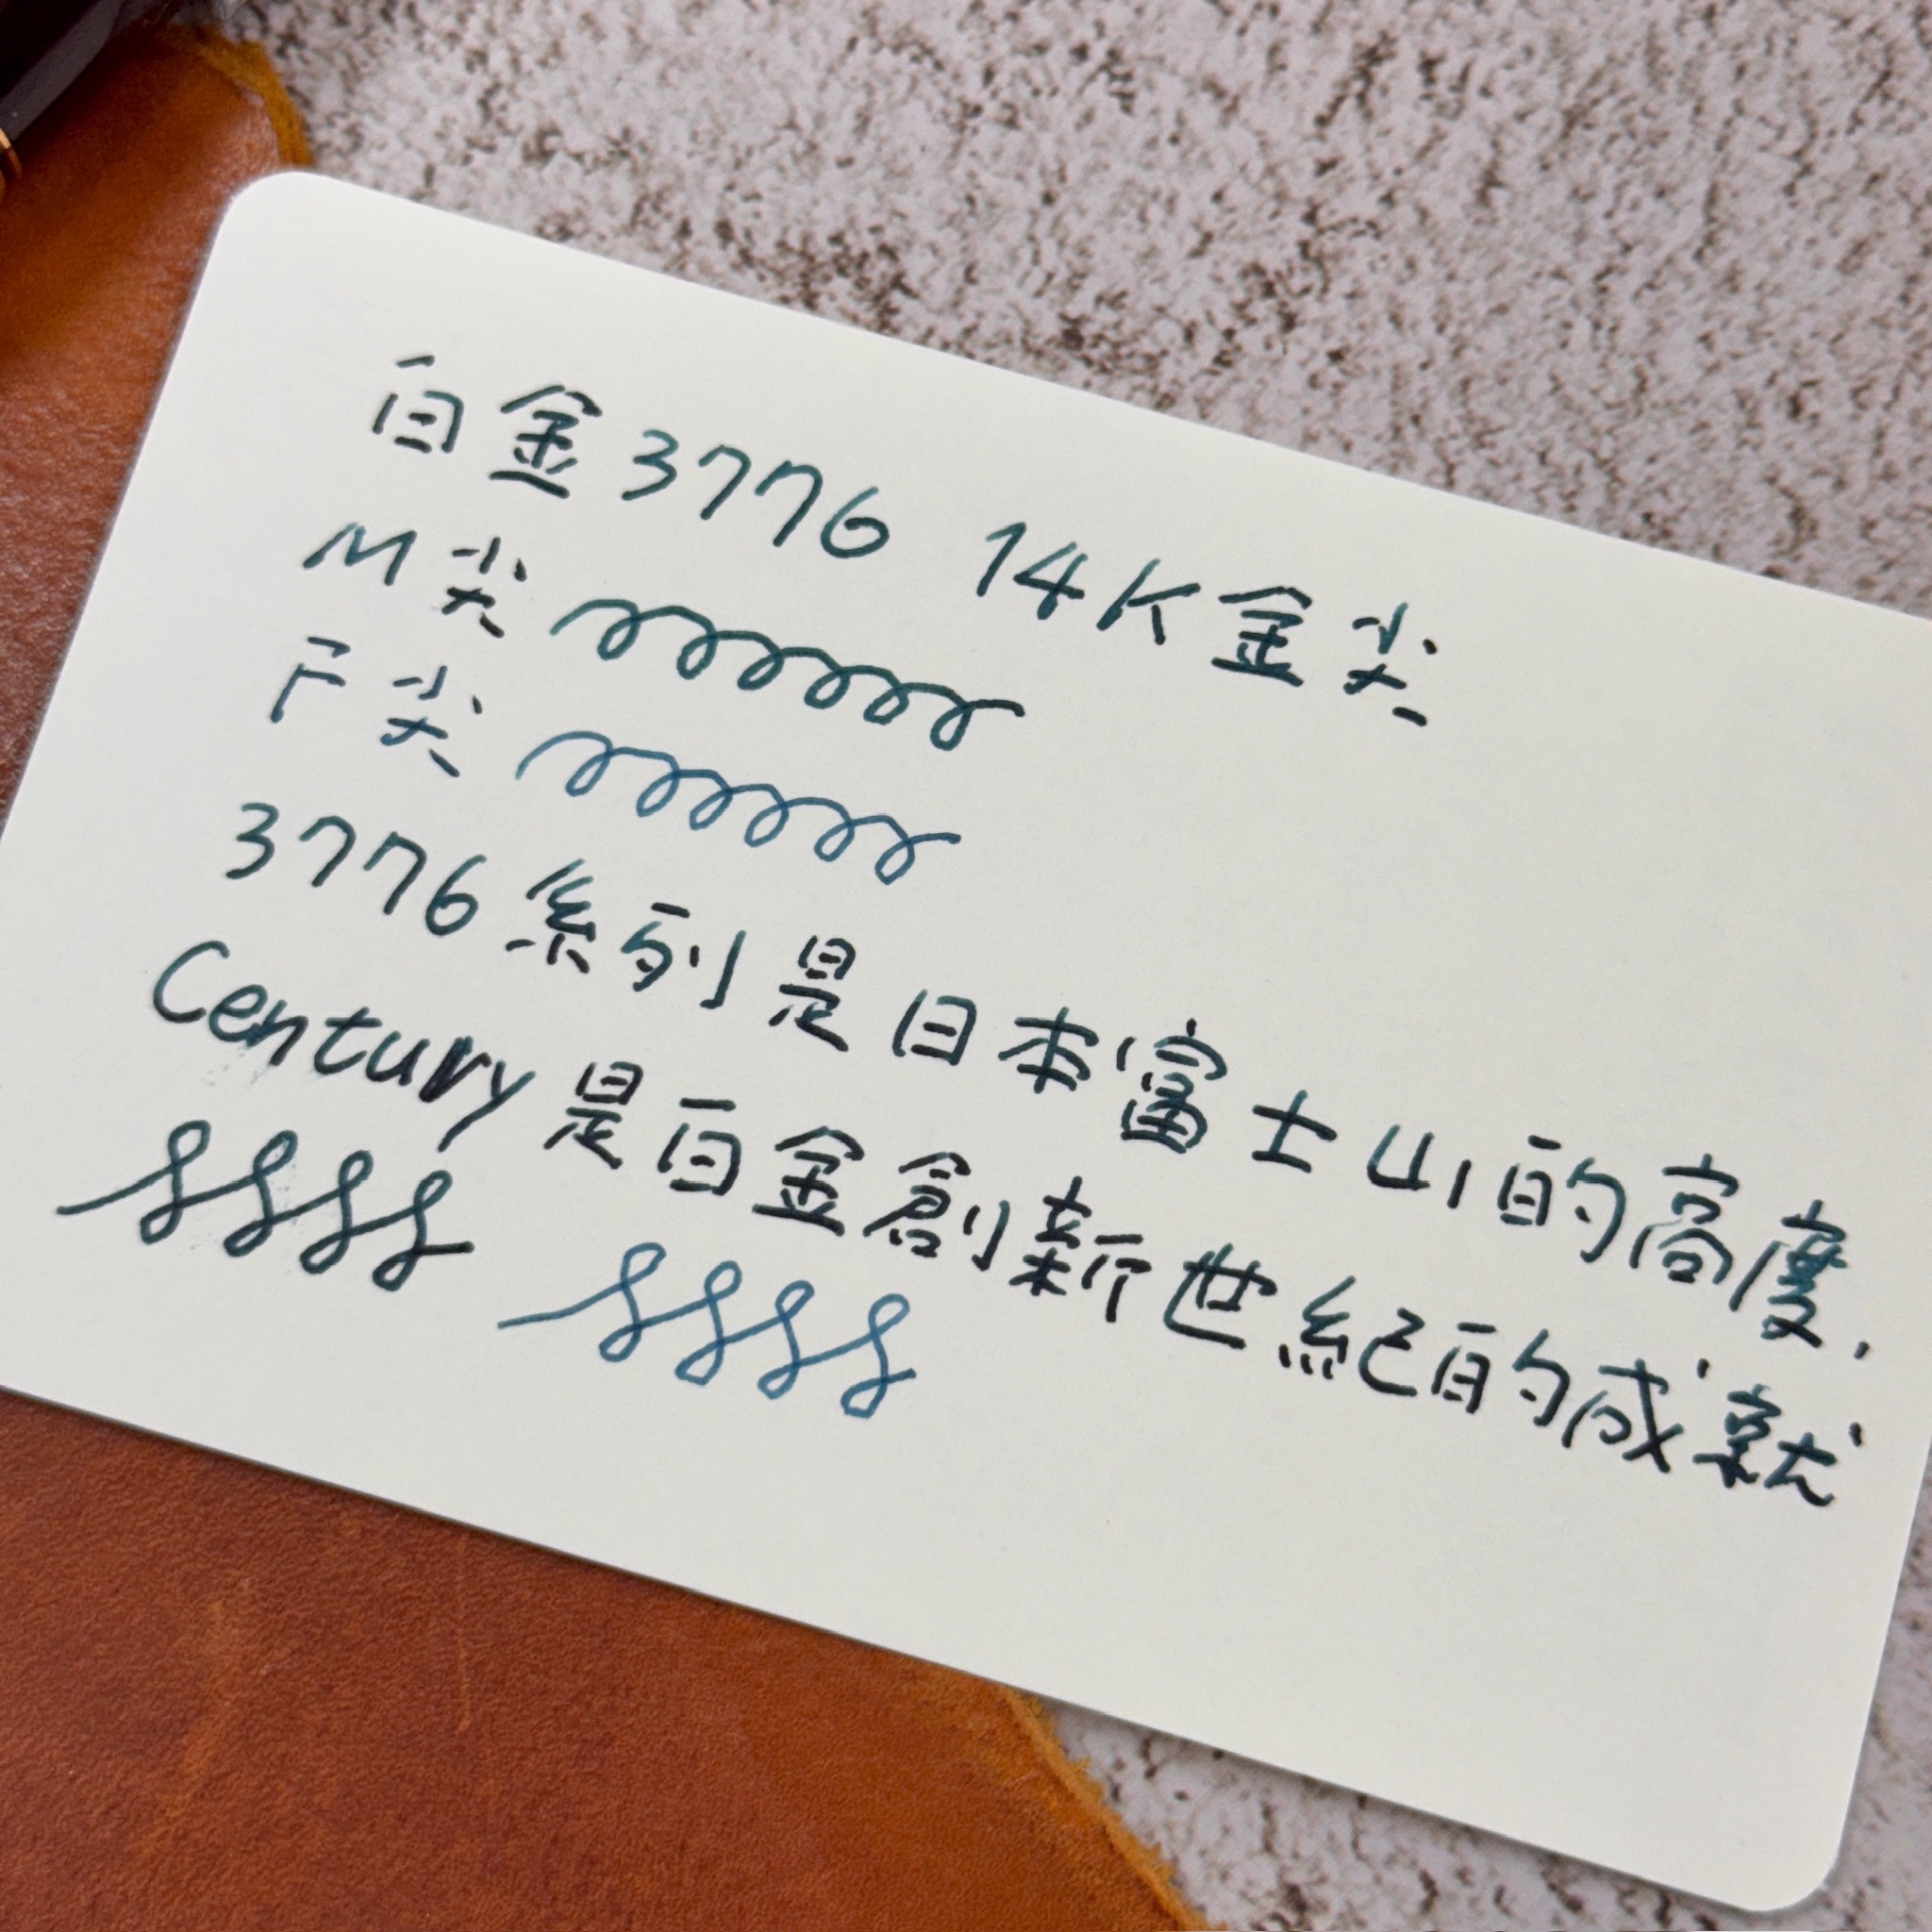 白金3776 14K金尖
M尖
F尖
3776系列是日本富士山的高度.
Century是白金創新世紀的成就